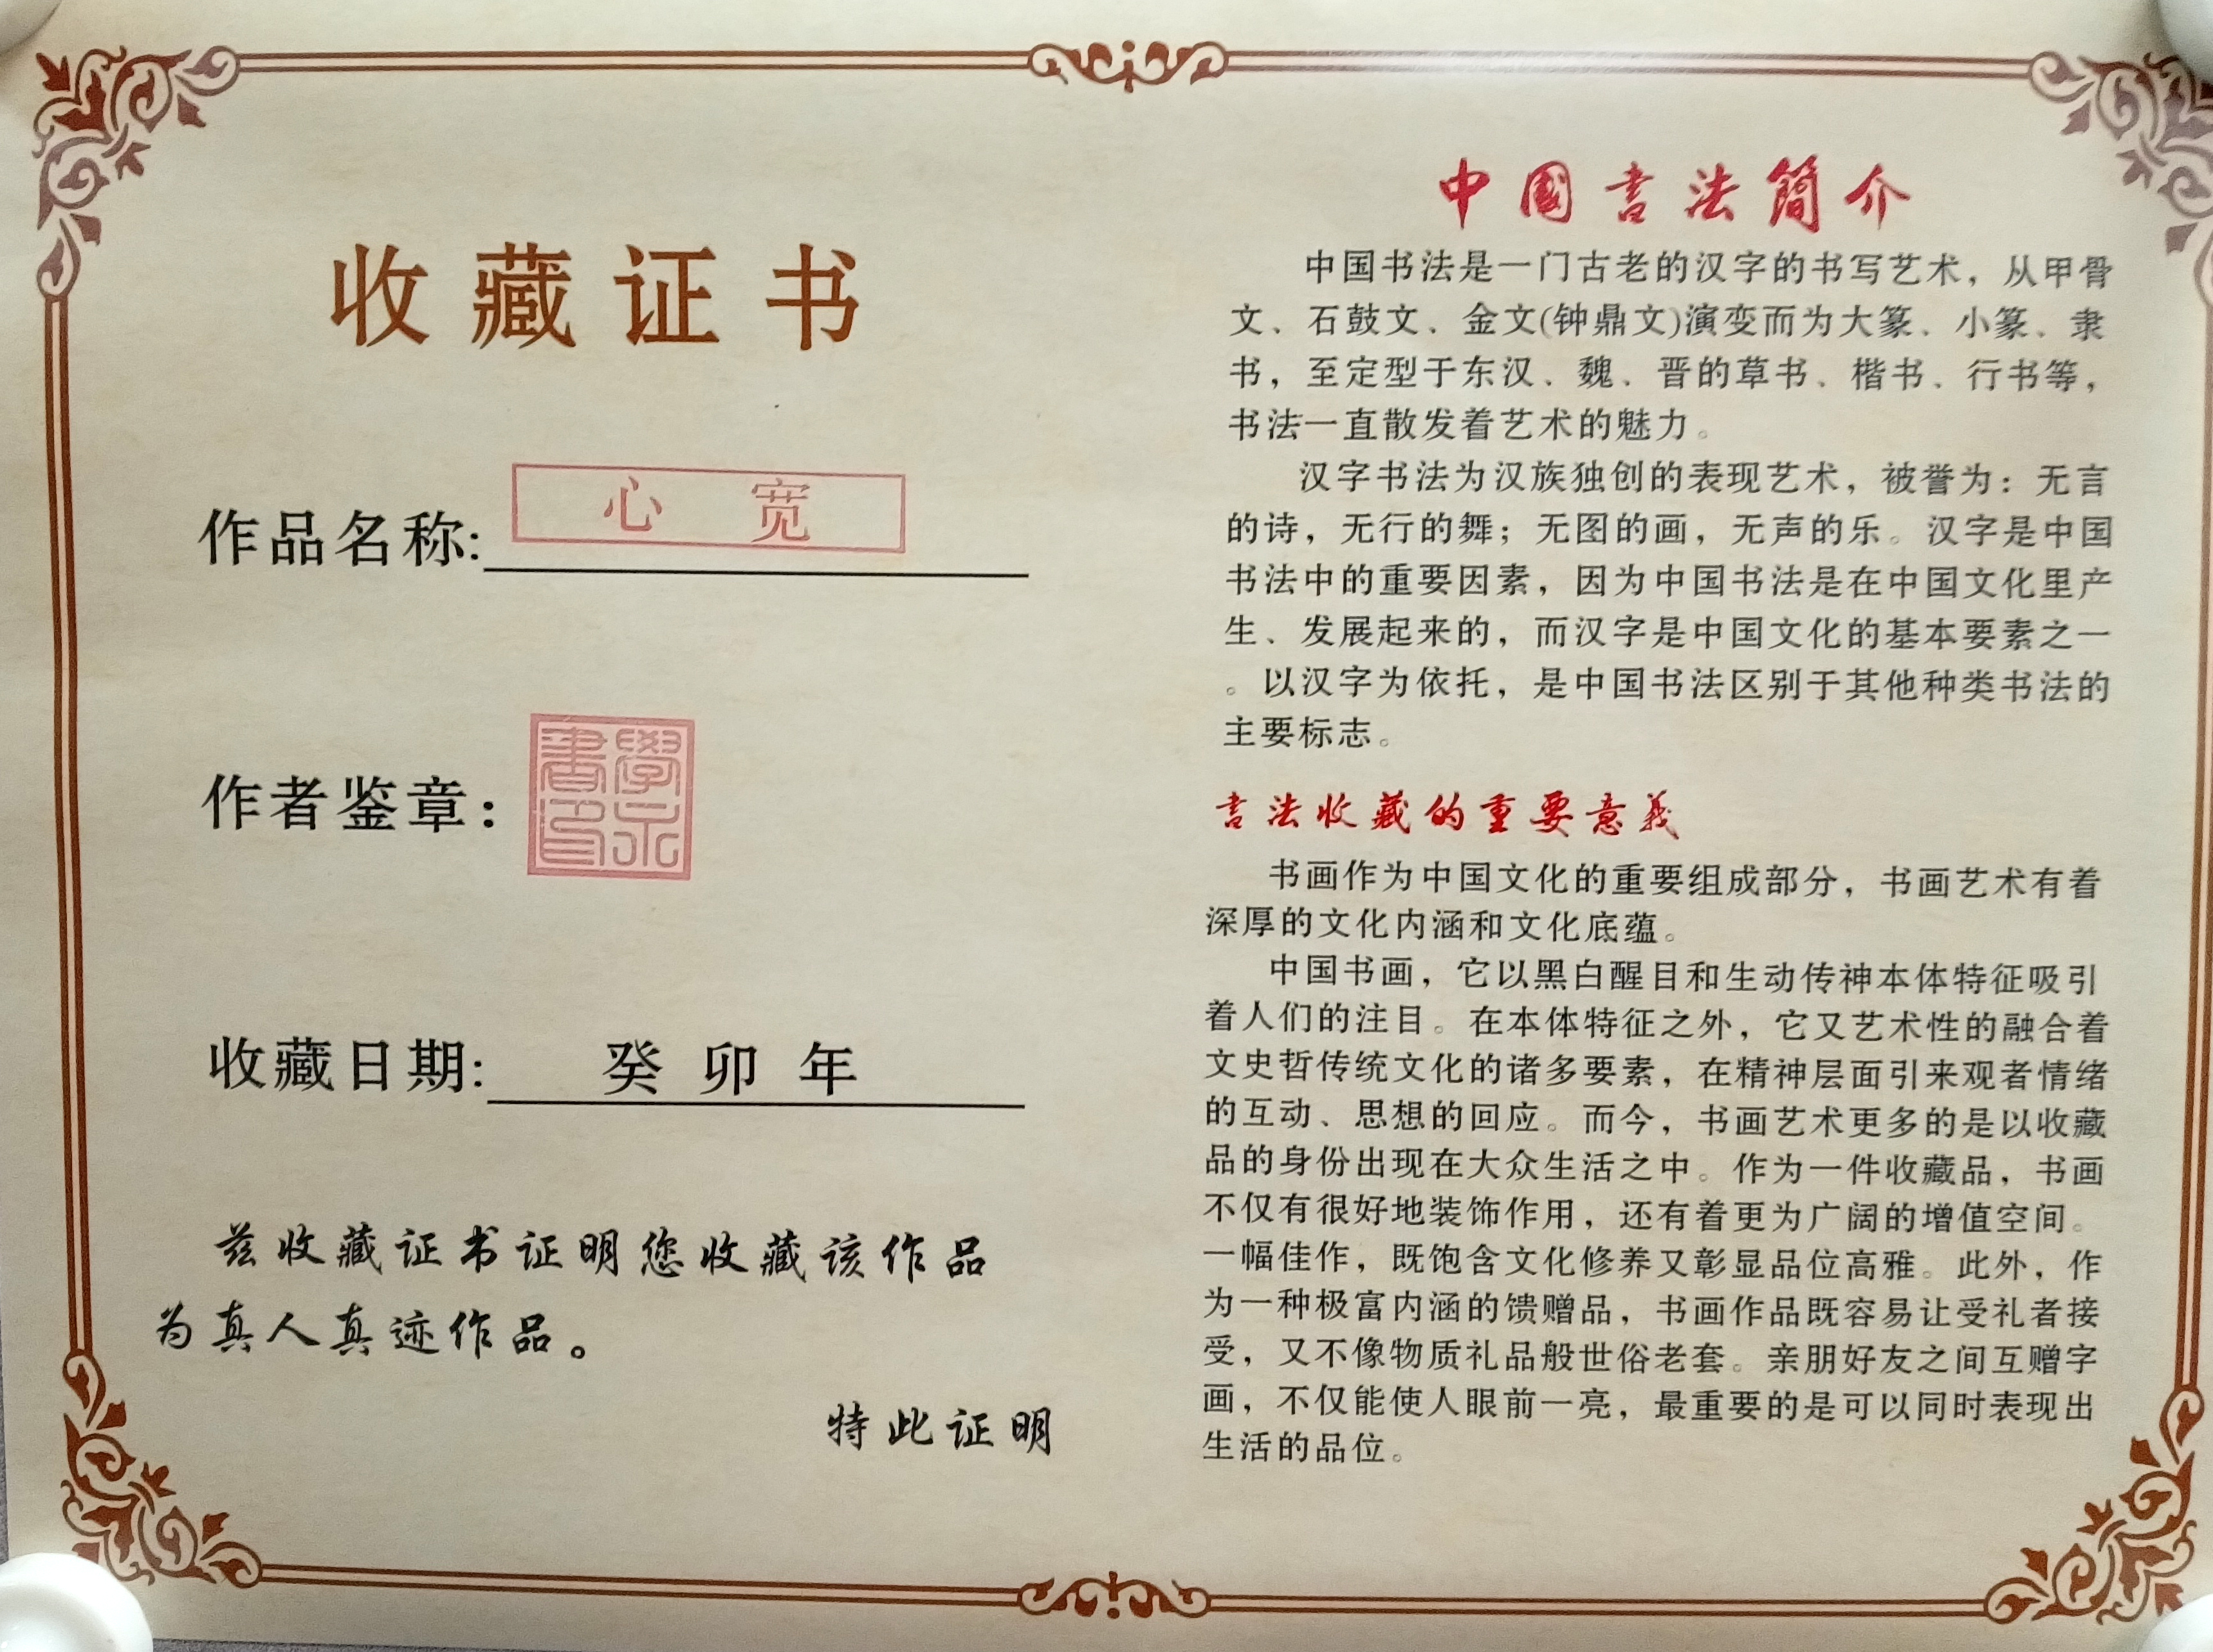 收藏证书
作品名称:
心 宽
作者鉴章：
收藏日期: 癸卯年
兹收藏证书证明您收藏该作品
为真人真迹作品。
特此证明
中國书法簡介
中国书法是一门古老的汉字的书写艺术，从甲骨
文、石鼓文、金文(钟鼎文)演变而为大篆、小篆、隶
书，至定型于东汉、魏、晋的草书、楷书、行书等，
书法一直散发着艺术的魅力。
汉字书法为汉族独创的表现艺术，被誉为：无言
的诗，无行的舞；无图的画，无声的乐。汉字是中国
书法中的重要因素，因为中国书法是在中国文化里产
生、发展起来的，而汉字是中国文化的基本要素之一
。以汉字为依托，是中国书法区别于其他种类书法的
主要标志。
书法收藏的重要意義
书画作为中国文化的重要组成部分，书画艺术有着
深厚的文化内涵和文化底蕴。
中国书画，它以黑白醒目和生动传神本体特征吸引
着人们的注目。在本体特征之外，它又艺术性的融合着
文史哲传统文化的诸多要素，在精神层面引来观者情绪
的互动、思想的回应。而今，书画艺术更多的是以收藏
品的身份出现在大众生活之中。作为一件收藏品，书画
不仅有很好地装饰作用，还有着更为广阔的增值空间。
一幅佳作，既饱含文化修养又彰显品位高雅。此外，作
为一种极富内涵的馈赠品，书画作品既容易让受礼者接
受，又不像物质礼品般世俗老套。亲朋好友之间互赠字
画，不仅能使人眼前一亮，最重要的是可以同时表现出
生活的品位。